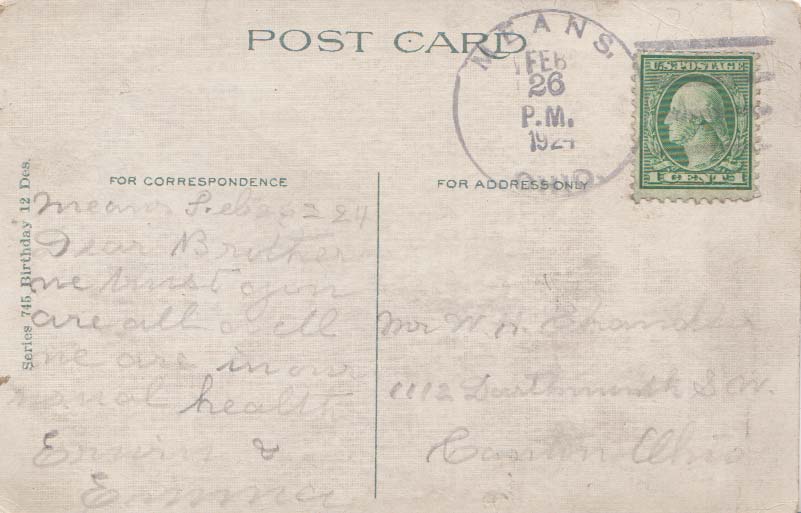 POST CARD
MEANS.
FEB
26
P.M.
1924
OHIO.
U.S. POSTAGE
1 CENT 1
FOR CORRESPONDENCE
FOR ADDRESS ONLY
Series 745 Birthday 12 Des.
Means Feb 24
Dear Brother
we trust you
are all well
we are in our
usual health
Erwin &
Emma
Mr W. H. Chandler
1112 Dartmouth S.W.
Canton Ohio